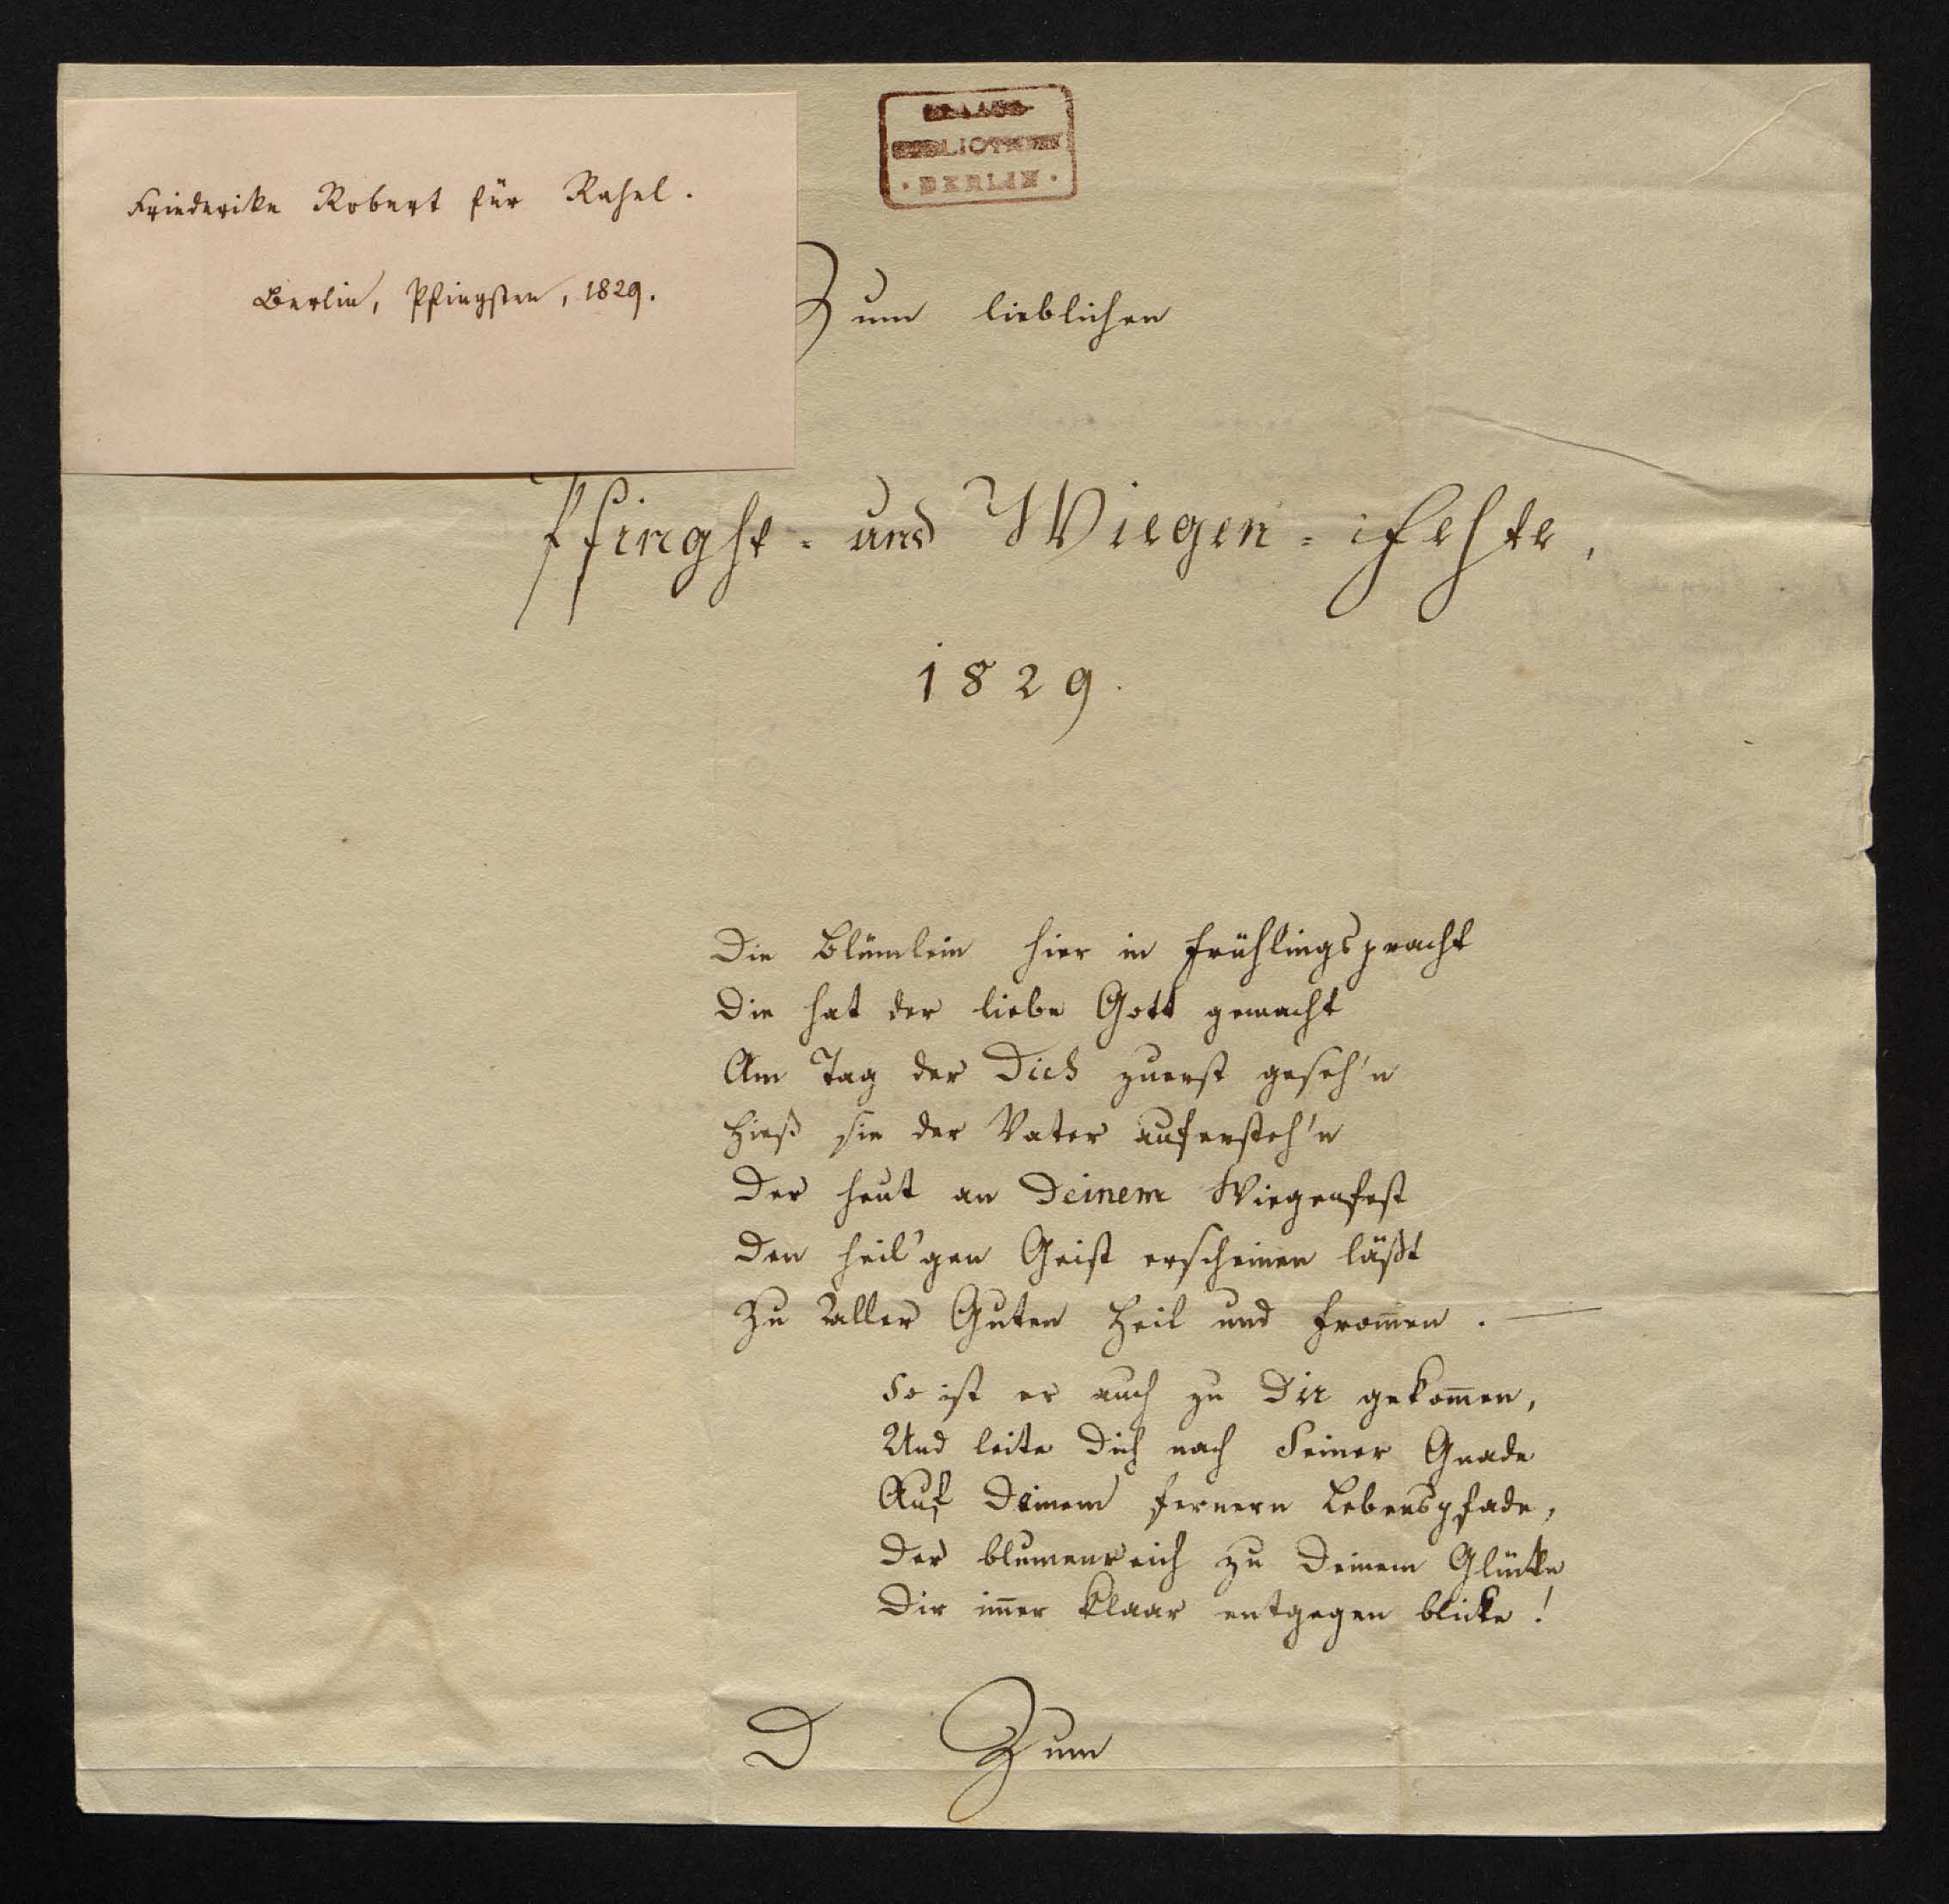 Friederike Robert für Rahel.
Berlin, Pfingsten, 1829.
BERLIN
Zum lieblichen
Pfingst- und Wiegen-Feste,
1829.
Die Blümlein hier in Frühlingspracht
Die hat der liebe Gott gemacht
Am Tag der Dich zuerst geseh'n
Hieß sie der Vater aufersteh'n
Der heut an Deinem Wiegenfest
Den heil'gen Geist erscheinen läßt
Zu Aller Guten Heil und Fromen. —
So ist er auch zu Dir gekom̅en,
Und leite Dich nach Seiner Gnade
Auf Deinem fernern Lebenspfade,
Der blumenreich zu Deinem Glücke
Dir im̅er klaar entgegen blicke!
D Zum